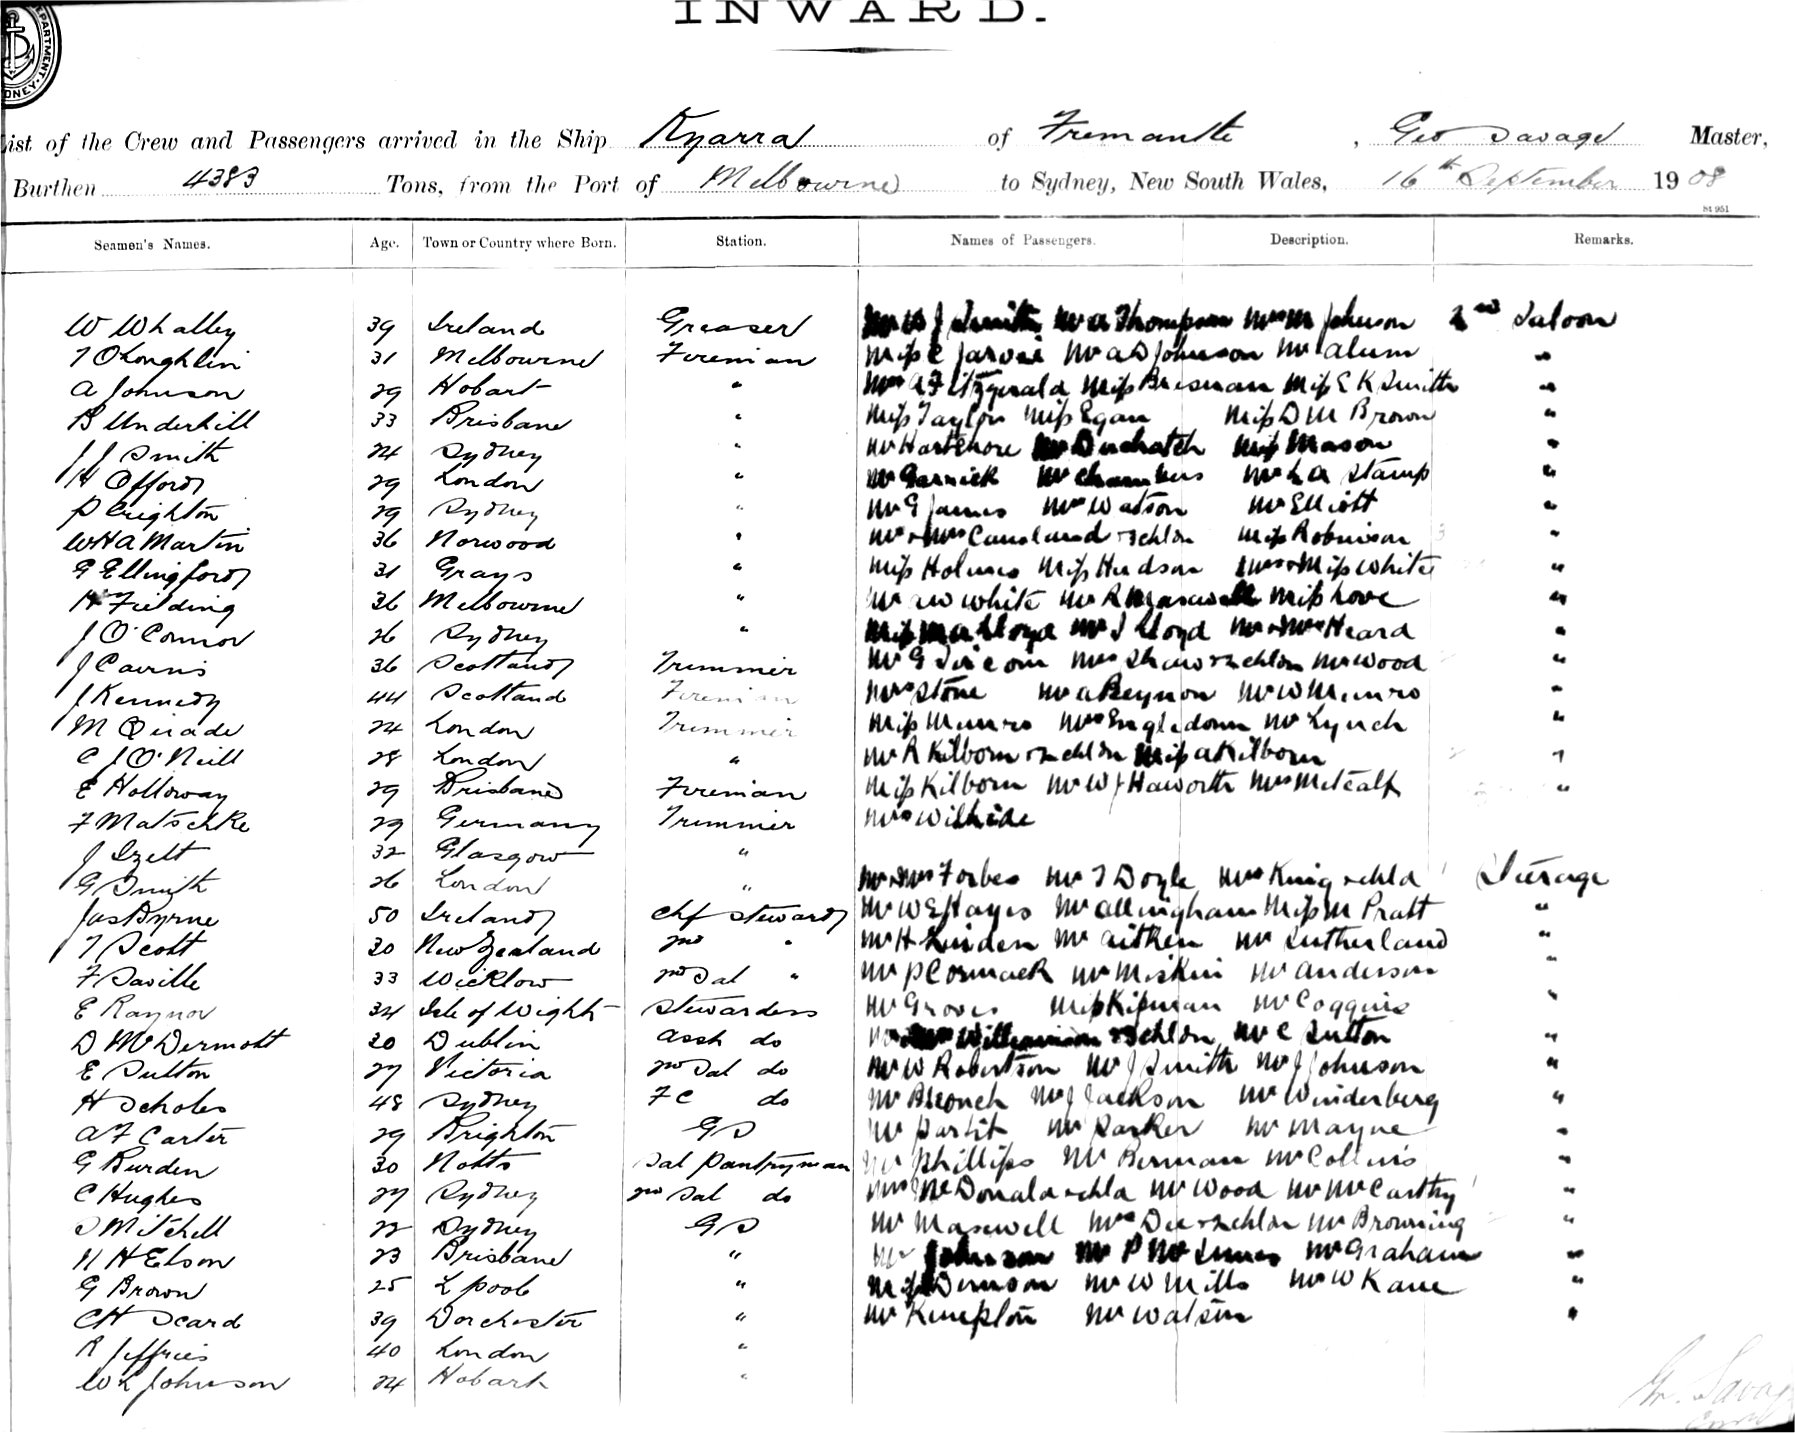 INWARD.
DEPARTMENT. SYDNEY.
List of the Crew and Passengers arrived in the Ship Kyarra of Fremantle, Geo Savage Master,
Burthen 4383 Tons, from the Port of Melbourne to Sydney, New South Wales, 16th September 1908
84 951
Seamen's Names. Age. Town or Country where Born. Station. Names of Passengers. Description. Remarks.
W Whalley 39 Ireland Greaser J Smith Mr A Thompson Mrs M Johnson 2nd Saloon
T O'Loughlin 31 Melbourne Fireman Miss C Jarvie Mr A D Johnson Mr Alum "
A Johnson 29 Hobart " Mrs A Fitzgerald Miss Miss E K Smith "
B Underhill 33 Brisbane " Miss Taylor Miss Egan Miss D M Brown "
J J Smith 24 Sydney " Mr Hartshore Mr Miss Mason "
H Offord 29 London " Mr Garnick Mr Chambers Mr L A Stamp "
P Crighton 29 Sydney " Mr G James Mr Watson Mr Elliott "
W H A Martin 36 Norwood " Mr & Mrs Causland & 2 chldn Miss Robinson "
G Ellingford 31 Grays " Miss Holmes Miss Hudson Mrs & Miss White "
H Fielding 36 Melbourne " Mr A W White Mr R Maxwell Miss Love "
J O'Connor 26 Sydney " Miss M A Lloyd Mr J Lloyd Mr & Mrs Heard "
J Cairns 36 Scotland Trimmer Mr G Mrs Shaw & 2 chldn Mr Wood "
J Kennedy 44 Scotland Fireman Mrs Stone Mr A Beynon Mr W Munro "
M Quade 24 London Trimmer Miss Munro Mrs Engledonn Mr Lynch "
C J O'Neill 28 London " Mr R Kilborn & 2 chldn Miss A Kilborn "
E Holloway 29 Brisbane Fireman Miss Kilborn Mr W J Haworth Mrs Metcalf "
F Matschke 29 Germany Trimmer Mrs
J Izett 32 Glasgow "
G Smith 26 London " Mr & Mrs Forbes Mr T Doyle Mrs King & chld Steerage
Jas Byrne 50 Ireland Chf Steward Mr W E Hayes Mr Allingham Miss M Pratt "
T Scott 30 New Zealand 2nd " Mr H Linden Mr Aitken Mr Sutherland "
F Saville 33 Wicklow 2nd Sal " Mr P Cormack Mr Miskin Mr Anderson "
E Raynor 34 Isle of Wight Stewardess Mr Groves Miss Kipman Mr Coggins "
D McDermott 20 Dublin Asst do Williamson & 2 chldn Mr C Sutton "
E Sutton 27 Victoria 2nd Sal do Mr W Robertson Mr J Smith Mr J Johnson "
H Scholes 48 Sydney F C do Mr B Mr J Jackson Mr Winderberg "
A F Carter 29 Brighton G S Mr Mr Parker Mr Mayne "
G Burden 30 Notts Sal Pantryman Mr Phillips Mr Berman Mr Collins "
C Hughes 27 Sydney 2nd Sal do Mrs McDonald & chld Mr Wood Mr McCarthy "
S Mitchell 22 Sydney G S Mr Maxwell Mrs Dee & 2 chldn Mr Browning "
N H Elson 23 Brisbane " Mr Johnson Mr P Mr Graham "
G Brown 25 L'pool " Denison Mr W Mills Mr W Kane "
C H Scard 39 Dorchester " Mr Kempton Mr Watson "
R Jeffries 40 London "
W L Johnson 24 Hobart "
G. Savage